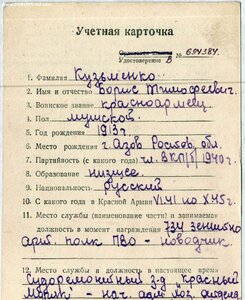 Учетная карточка
Орденская книжка
Удостоверение В № 694384.
1. Фамилия Кузьменко
2. Имя и отчество Борис Тимофеевич.
3. Воинское звание красноармеец
4. Пол мужской
5. Год рождения 1913 г.
6. Место рождения г. Азов Ростов. обл.
7. Партийность (с какого года) чл. ВКП/б/ 1940 г.
8. Образование низшее
9. Национальность русский
10. С какого года в Красной Армии VI.41 по X.45 г.
11. Место службы (наименование части) и занимаемая
должность в момент награждения 734 зенитно
арт. полк ПВО - наводчик.
12. Место службы и должность в настоящее время
Судоремонтный з-д "Красный
Моряк" - нач. адм. хоз. отдела